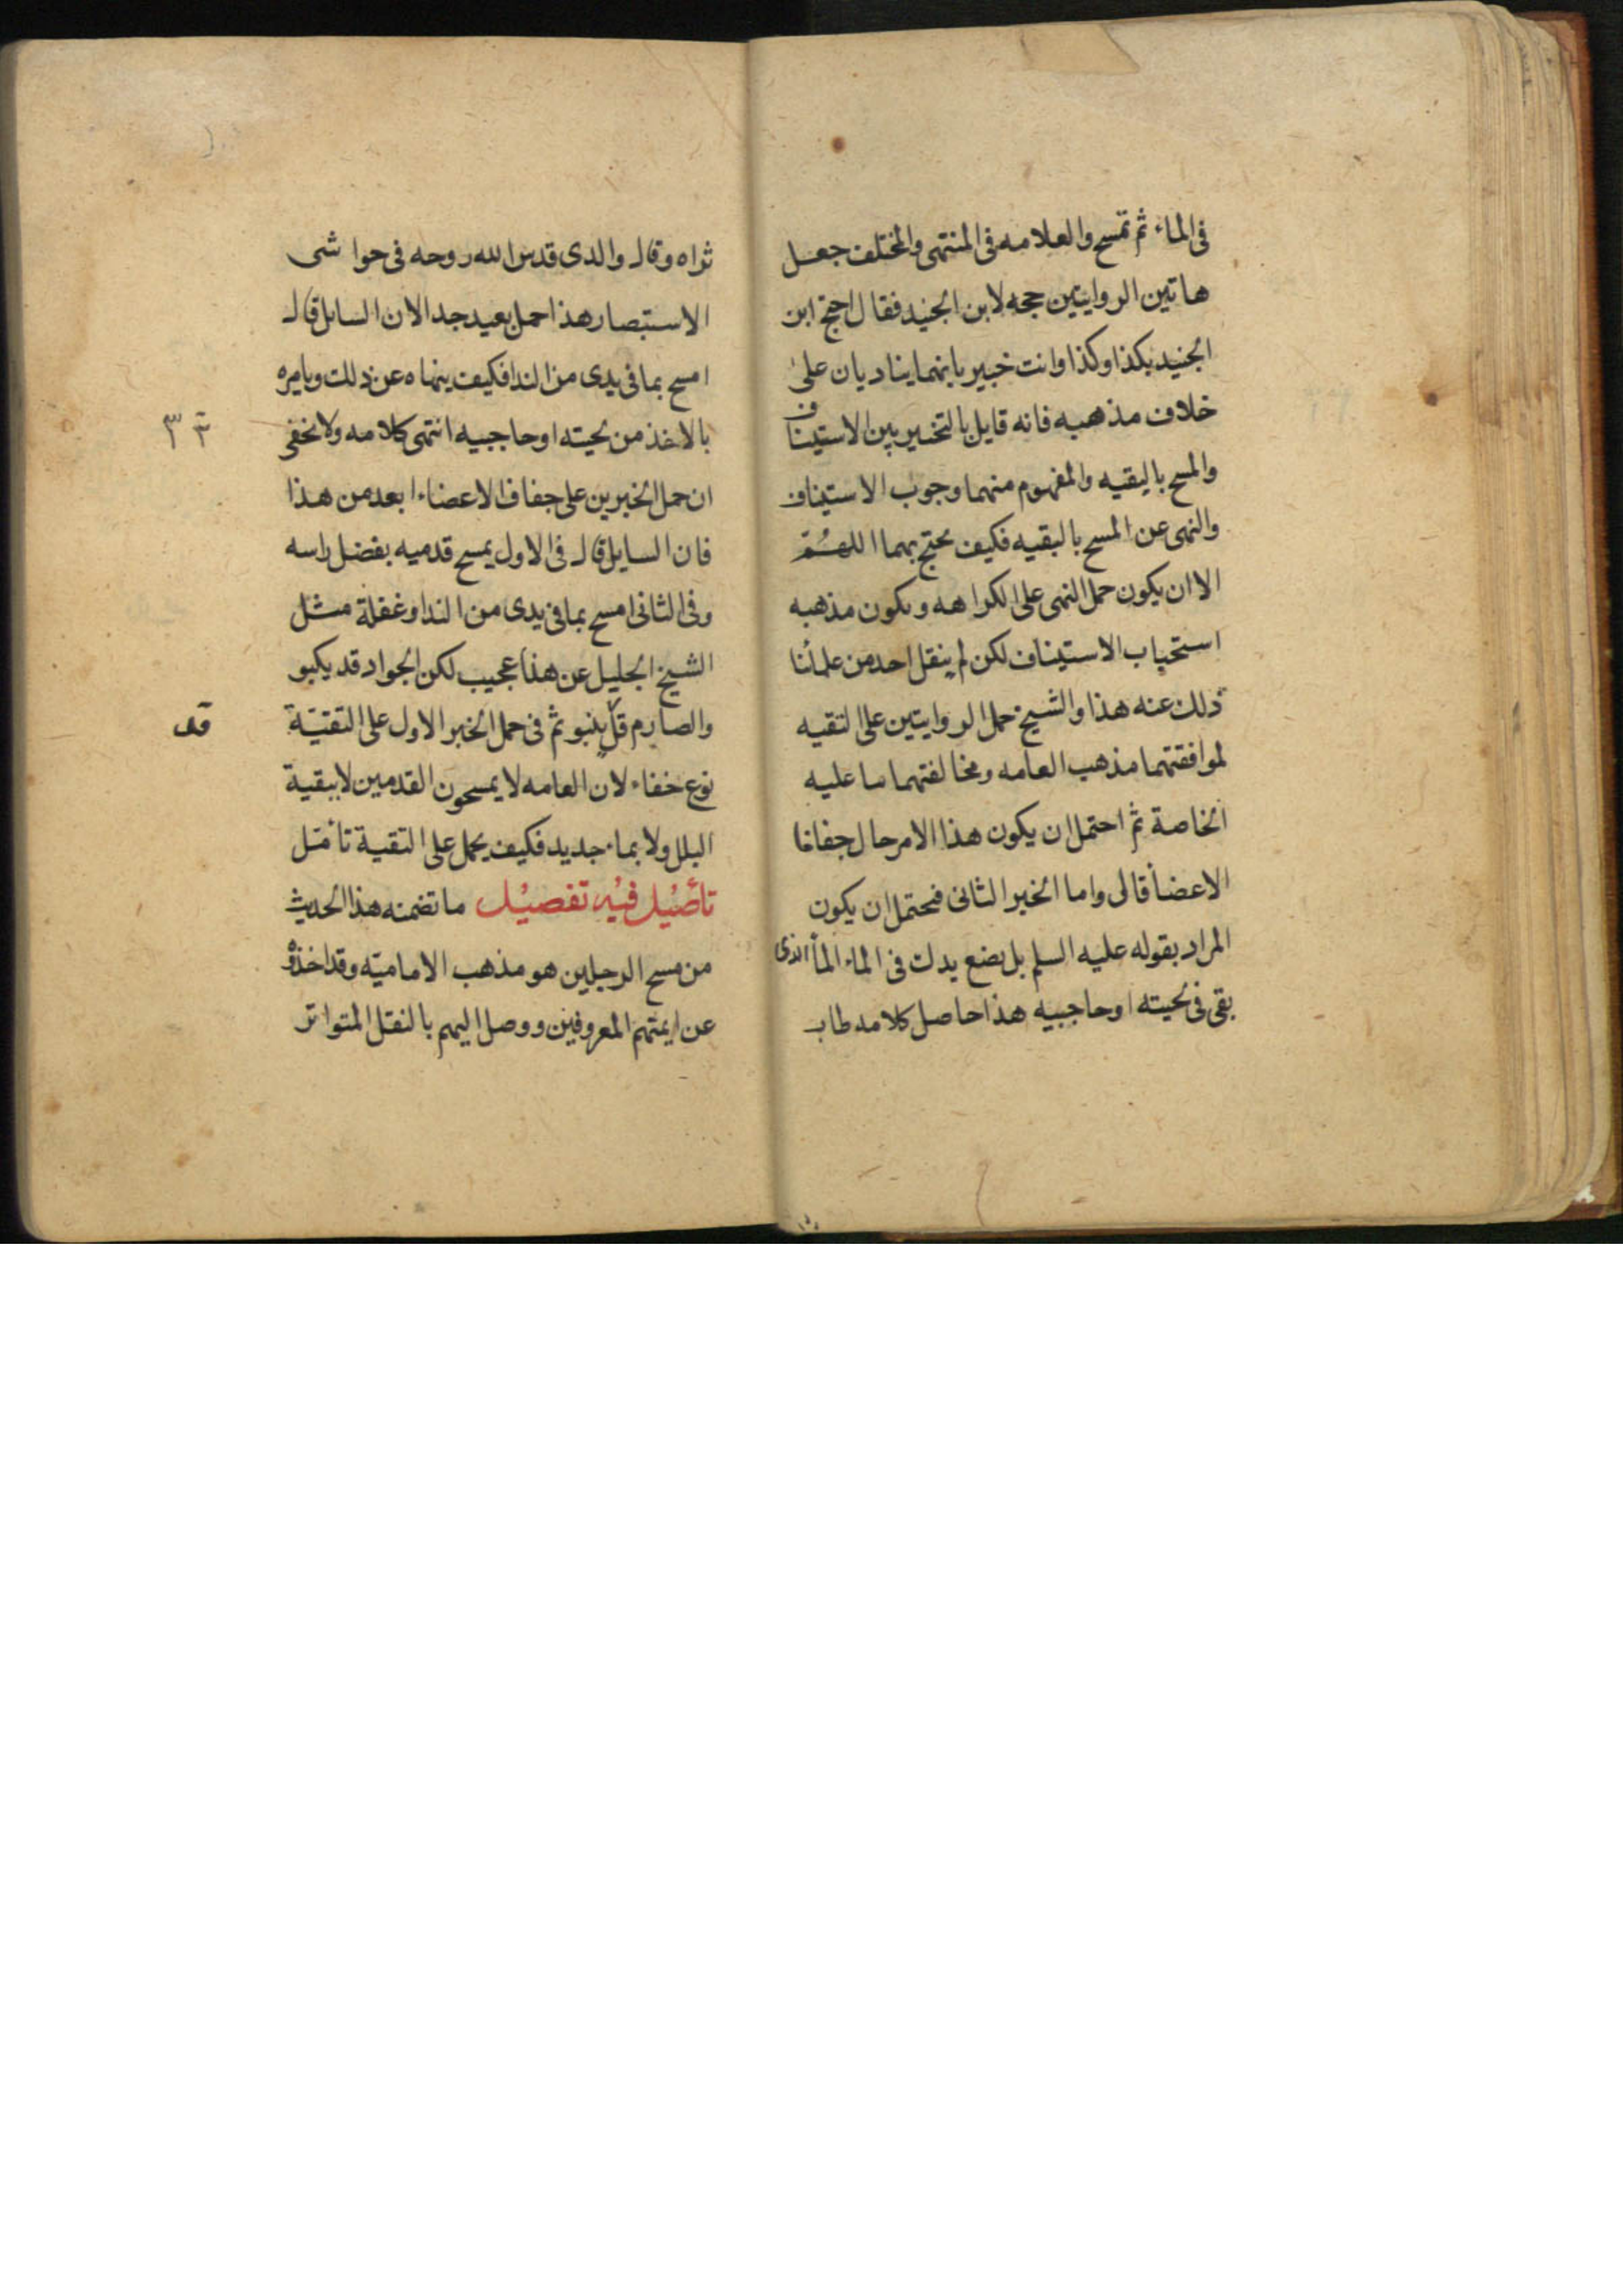 فى الماء ثم تمسح والعلامه فى المنتهى والمختلف جعل
هاتين الروايتين حجه لابن الجنيد فقال احتج ابن
الجنيد بكذا وكذا وانت خبير بانهما يناديان على
خلاف مذهبه فانه قايل بالتخيير بين الاستيناف
والمسح بالبقيه والمفهوم منهما وجوب الاستيناف
والنهى عن المسح بالبقيه فكيف يحتج بهما اللهم
الا ان يكون حمل النهى على الكراهه ويكون مذهبه
استحباب الاستيناف لكن لم ينقل احد من علمائنا
ذلك عنه هذا والشيخ حمل الروايتين على التقيه
لموافقتهما مذهب العامه ومخالفتهما ما عليه
الخاصة ثم احتمل ان يكون هذا الامر حال جفاف
الاعضا قال واما الخبر الثانى فيحتمل ان يكون
المراد بقوله عليه السلم بل يضع يدك فى الماء الماء الذى
بقى فى لحيته او حاجبيه هذا حاصل كلامه طاب
ثراه وقال والدى قدس الله روحه فى حواشى
الاستبصار هذا احمل بعيد جدا لان السايل قال
امسح بما فى يدى من الندا فكيف ينهاه عن ذلك ويامره
بالاخذ من لحيته او حاجبيه انتهى كلامه ولا يخفى
ان حمل الخبرين على جفاف الاعضاء ابعد من هذا
فان السايل قال فى الاول يمسح قدميه بفضل راسه
وفى الثانى امسح بما فى يدى من الندا وغفلة مثل
الشيخ الجليل عن هذا عجيب لكن الجواد قد يكبو
والصارم قل ينبو ثم فى حمل الخبر الاول على التقيّة
قد
نوع خفاء لان العامه لا يمسحون القدمين لا ببقية
البلل ولا بماء جديد فكيف يحمل على التقية تأمّل
تأصيل فيه تفصيل ما تضمنه هذا الحديث
من مسح الرجلين هو مذهب الاماميّه وقد اخذوه
عن ايمتهم المعروفين ووصل اليهم بالنقل المتواتر